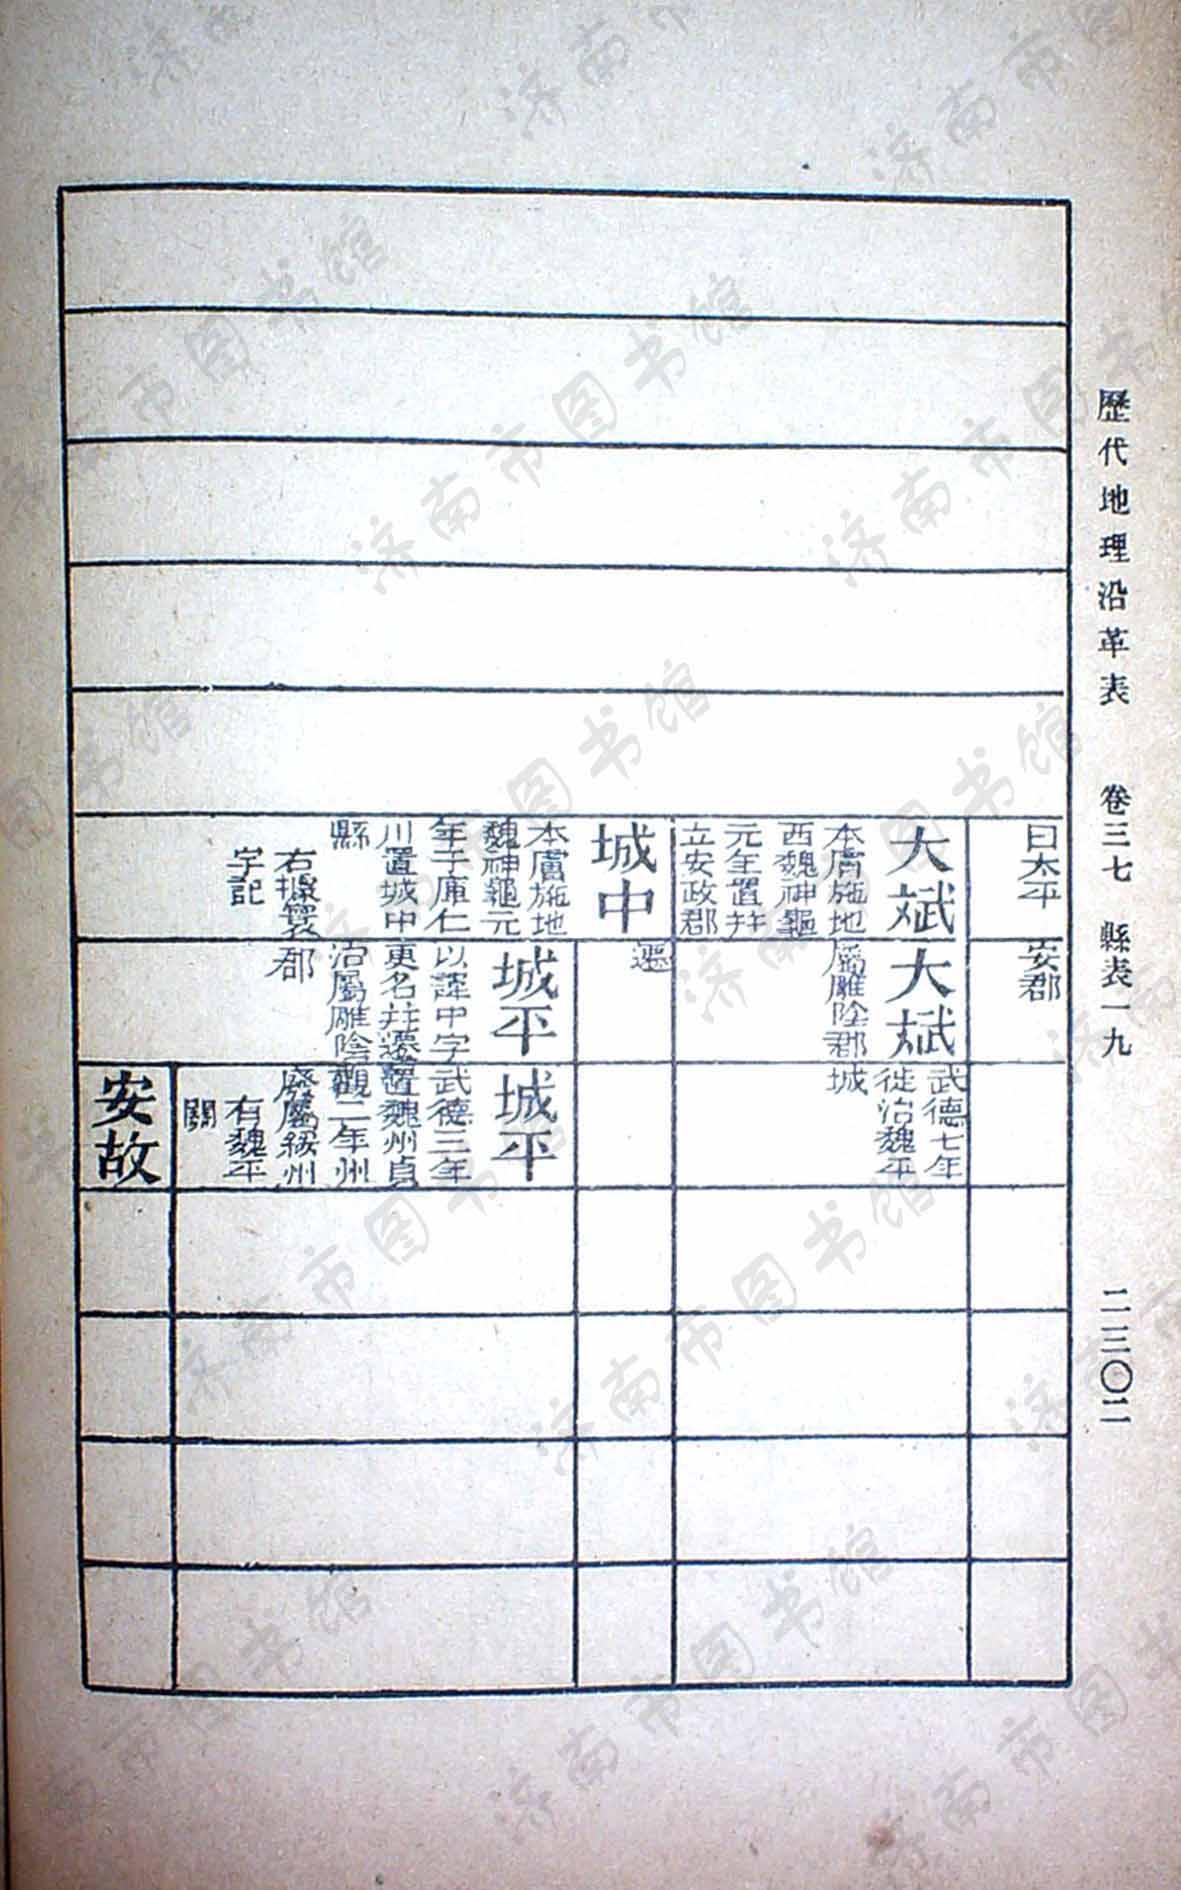 歷代地理沿革表 卷三七 縣表一九 二二〇二
曰太平
安郡
大斌
本膚施地
西魏神龜
元年置并
立安政郡
大斌
屬雕陰郡
武德七年
徙治魏平
城
城中
本膚施地
魏神龜元
年于庫仁
川置城中
縣
右據寰
宇記
城平
以諱中字
更名并遷
治屬雕陰
郡
城平
武德三年
置魏州貞
觀二年州
廢屬綏州
有魏平
關
安故
济南市图书馆